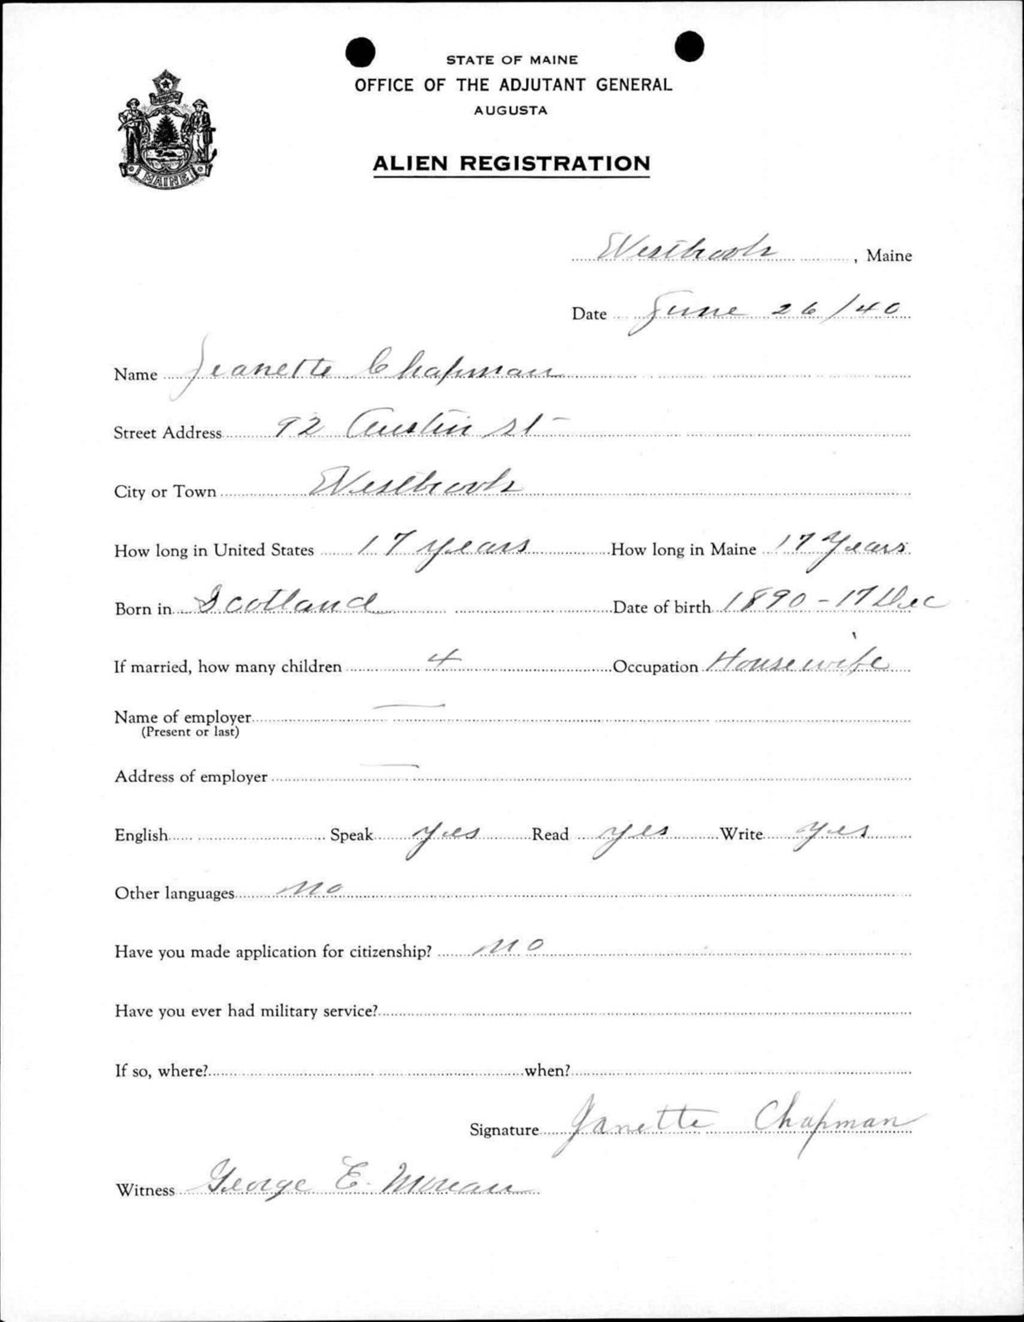 STATE OF MAINE
OFFICE OF THE ADJUTANT GENERAL
AUGUSTA
ALIEN REGISTRATION
MAINE
Westbrook, Maine
Date June 26/40
Name Jeanette Chapman
Street Address 92 Austin St
City or Town Westbrook
How long in United States 17 years How long in Maine 17 Years
Born in Scotland Date of birth 1890-17 Dec
If married, how many children 4 Occupation Housewife
Name of employer —
(Present or last)
Address of employer —
English Speak yes Read yes Write yes
Other languages no
Have you made application for citizenship? no
Have you ever had military service?
If so, where? when?
Signature Janette Chapman
Witness George E. Moreau